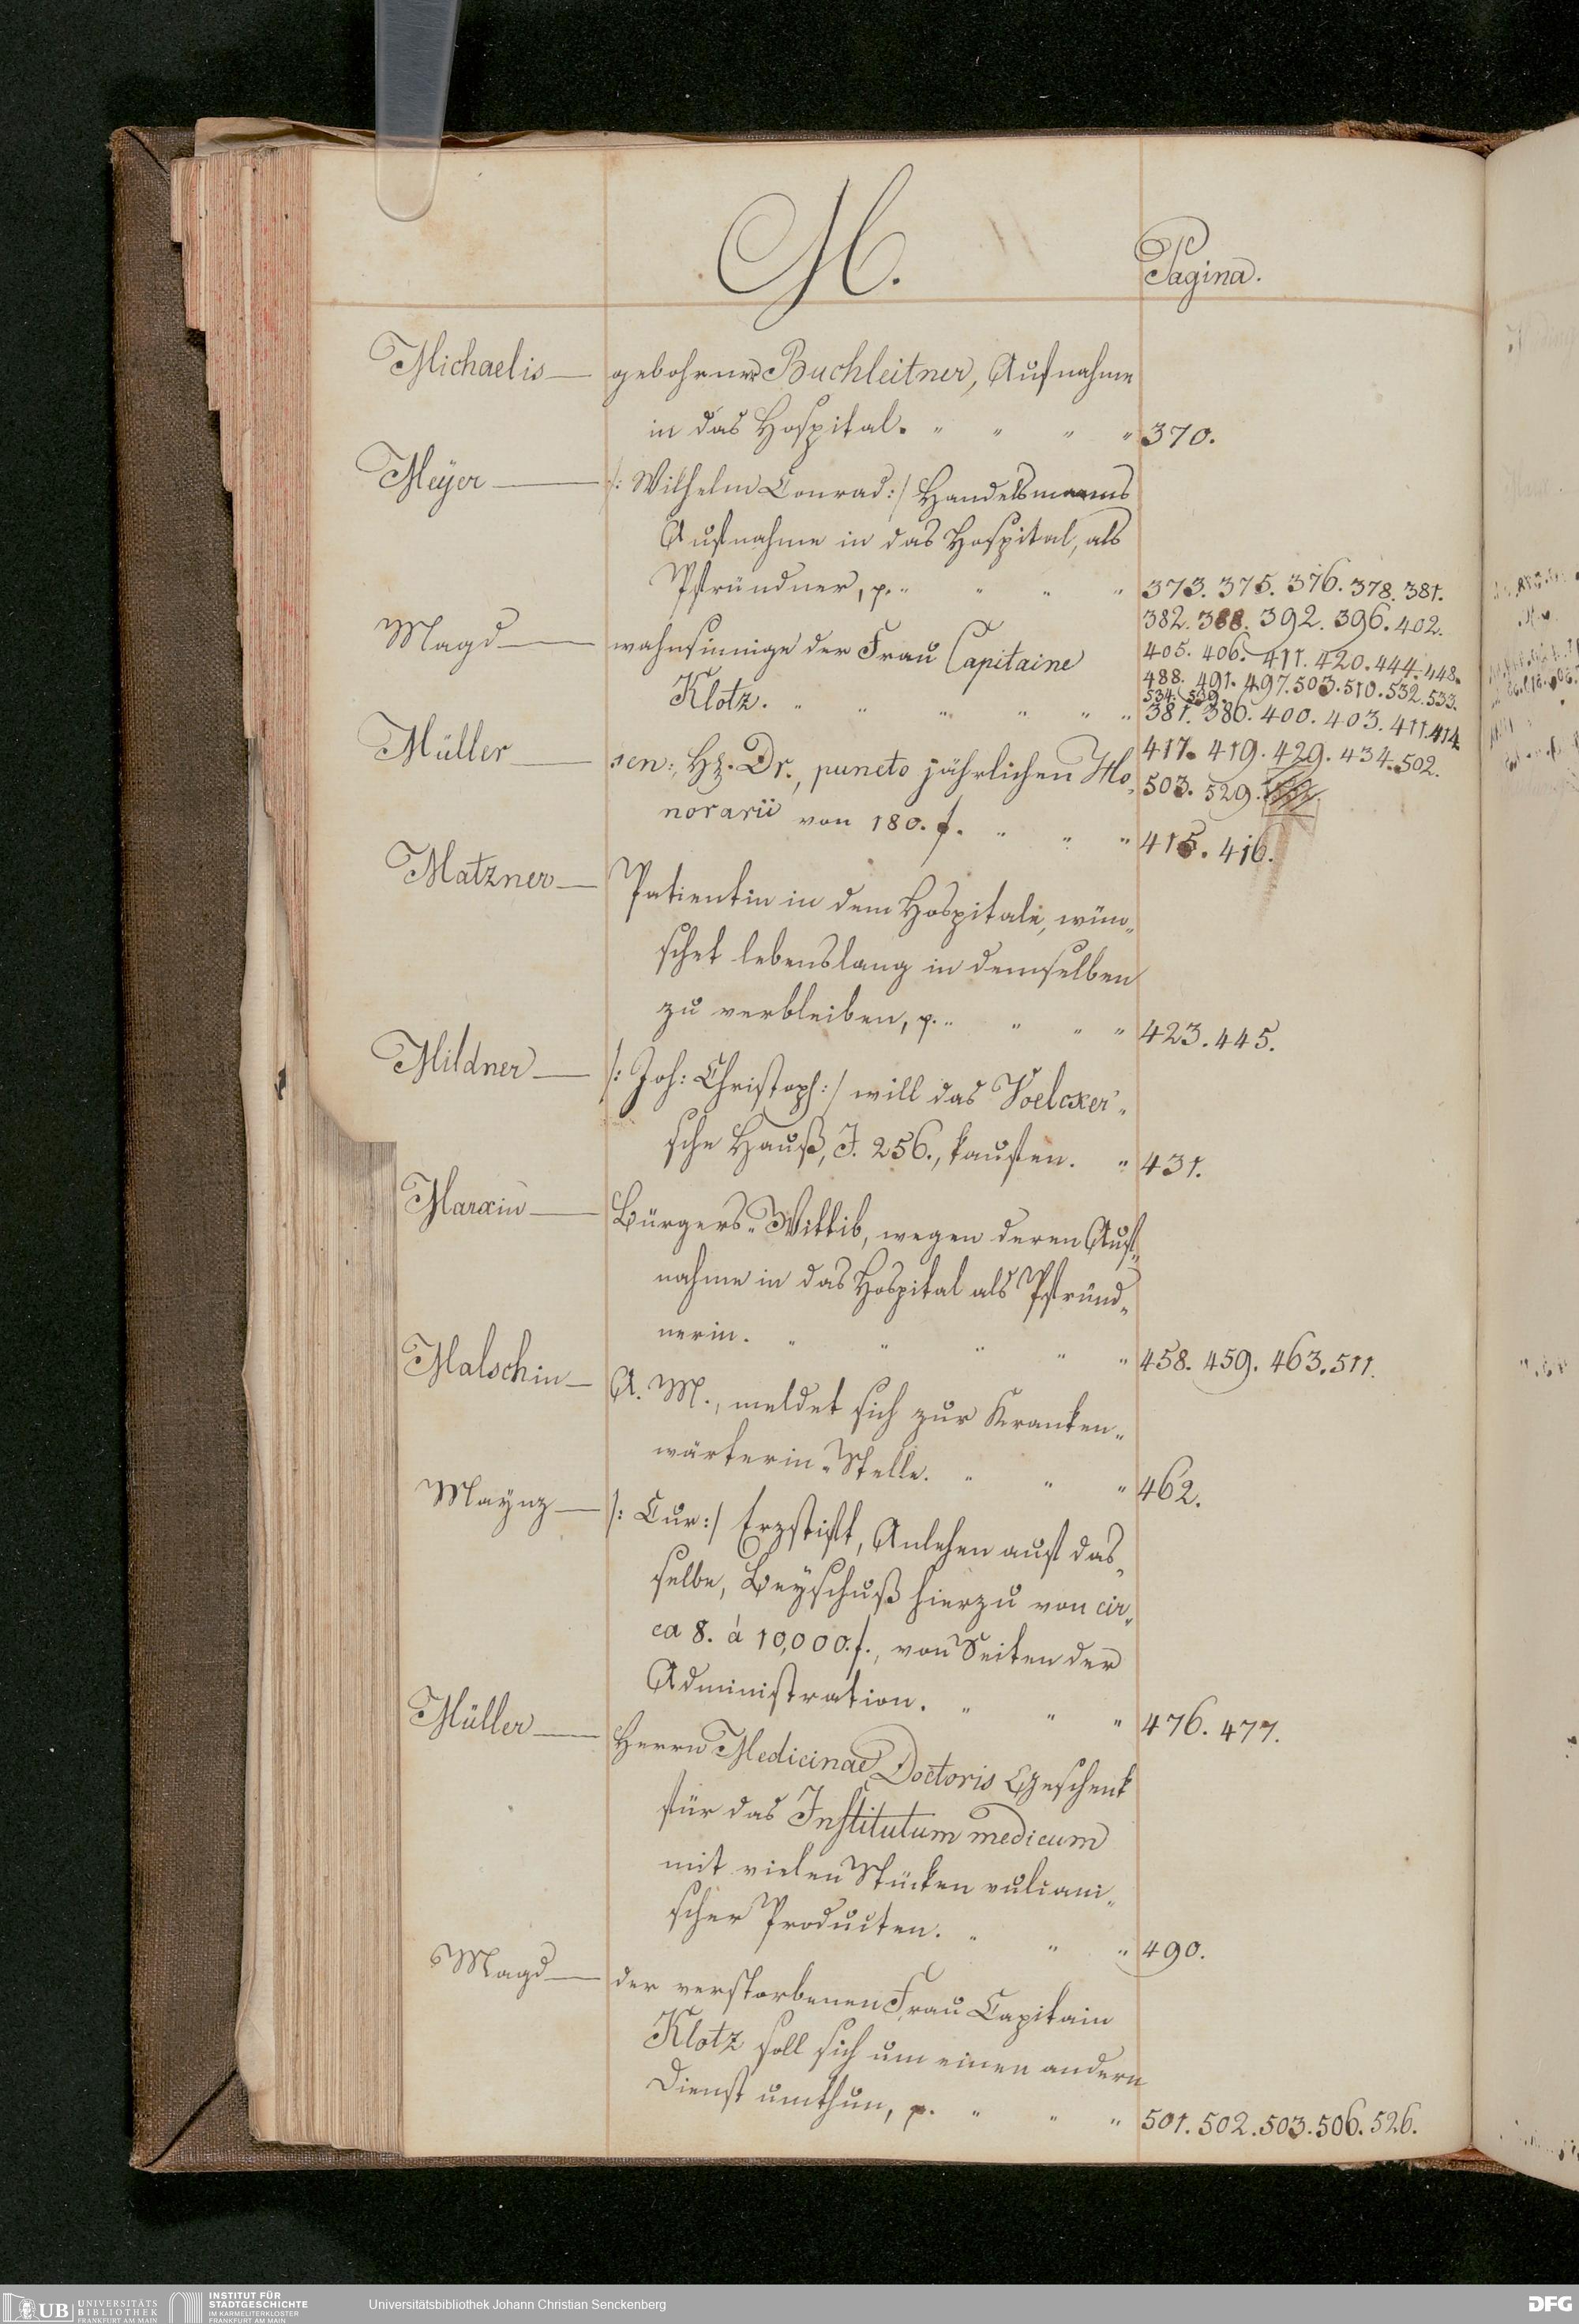 M.
Pagina.
Michaelis — gebohrner Buchleitner, Aufnahme
in das Hospital. " " " " 370.
Meÿer — /: Wilhelm Conrad :/ Handelsmanns
Aufnahme in das Hospital, als
Pfründner, p. " " " " 373. 375. 376. 378. 381.
382. 388. 392. 396. 402.
405. 406. 411. 420. 444. 448.
488. 491. 497. 503. 510. 532. 533.
534. 539.
Magd — wahnsinnige der Frau Capitaine
Klotz. " " " " " " 381. 386. 400. 403. 411. 414.
417. 419. 429. 434. 502.
503. 529.
Müller — sen:, Hr. Dr., puncto jährlichen Ho„
norarii von 180. f. " " " 415. 416.
Matzner — Patientin in dem Hospitale, wün„
schet lebenslang in demselben
zu verbleiben, p. " " " " 423. 445.
Mildner — /: Joh: Christoph :/ will das Voelcker'„
sche Hauß, J. 256., kaufen. " 431.
Marxin — Bürgers„Wittib, wegen deren Auf„
nahme in das Hospital als Pfründ„
nerin. " " " " " 458. 459. 463. 511.
Malschin — A. M., meldet sich zur Kranken„
wärterin„Stelle. " " " 462.
Maÿnz — /: Cur :/ Erzstift, Anlehen auf das„
selbe, Beÿschuß hierzu von cir„
ca 8. à 10,000. f., von Seiten der
Administration. " " " 476. 477.
Müller — Herrn Medicinae Doctoris Geschenk
für das Institutum medicum
mit vielen Stücken vulcani„
scher Producten. " " " 490.
Magd — der verstorbenen Frau Capitain
Klotz soll sich um einen andern
Dienst umthun, p. " " " 501. 502. 503. 506. 526.
UB UNIVERSITÄTS
BIBLIOTHEK
FRANKFURT AM MAIN
INSTITUT FÜR
STADTGESCHICHTE
IM KARMELITERKLOSTER
FRANKFURT AM MAIN
Universitätsbibliothek Johann Christian Senckenberg
DFG